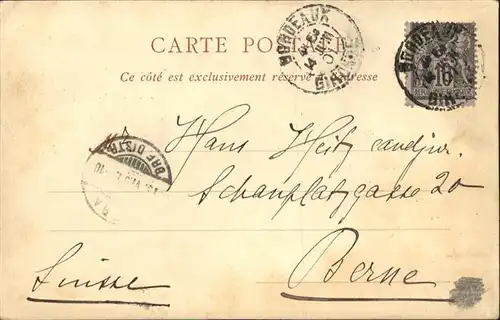 CARTE POSTALE
Ce côté est exclusivement réservé à l'adresse
BORDEAUX
GIRONDE
BORDEAUX
10
GIR
BRF. DISTR.
Hans Weitz cand jur.
Schauplatzgasse 20
Berne
Suisse